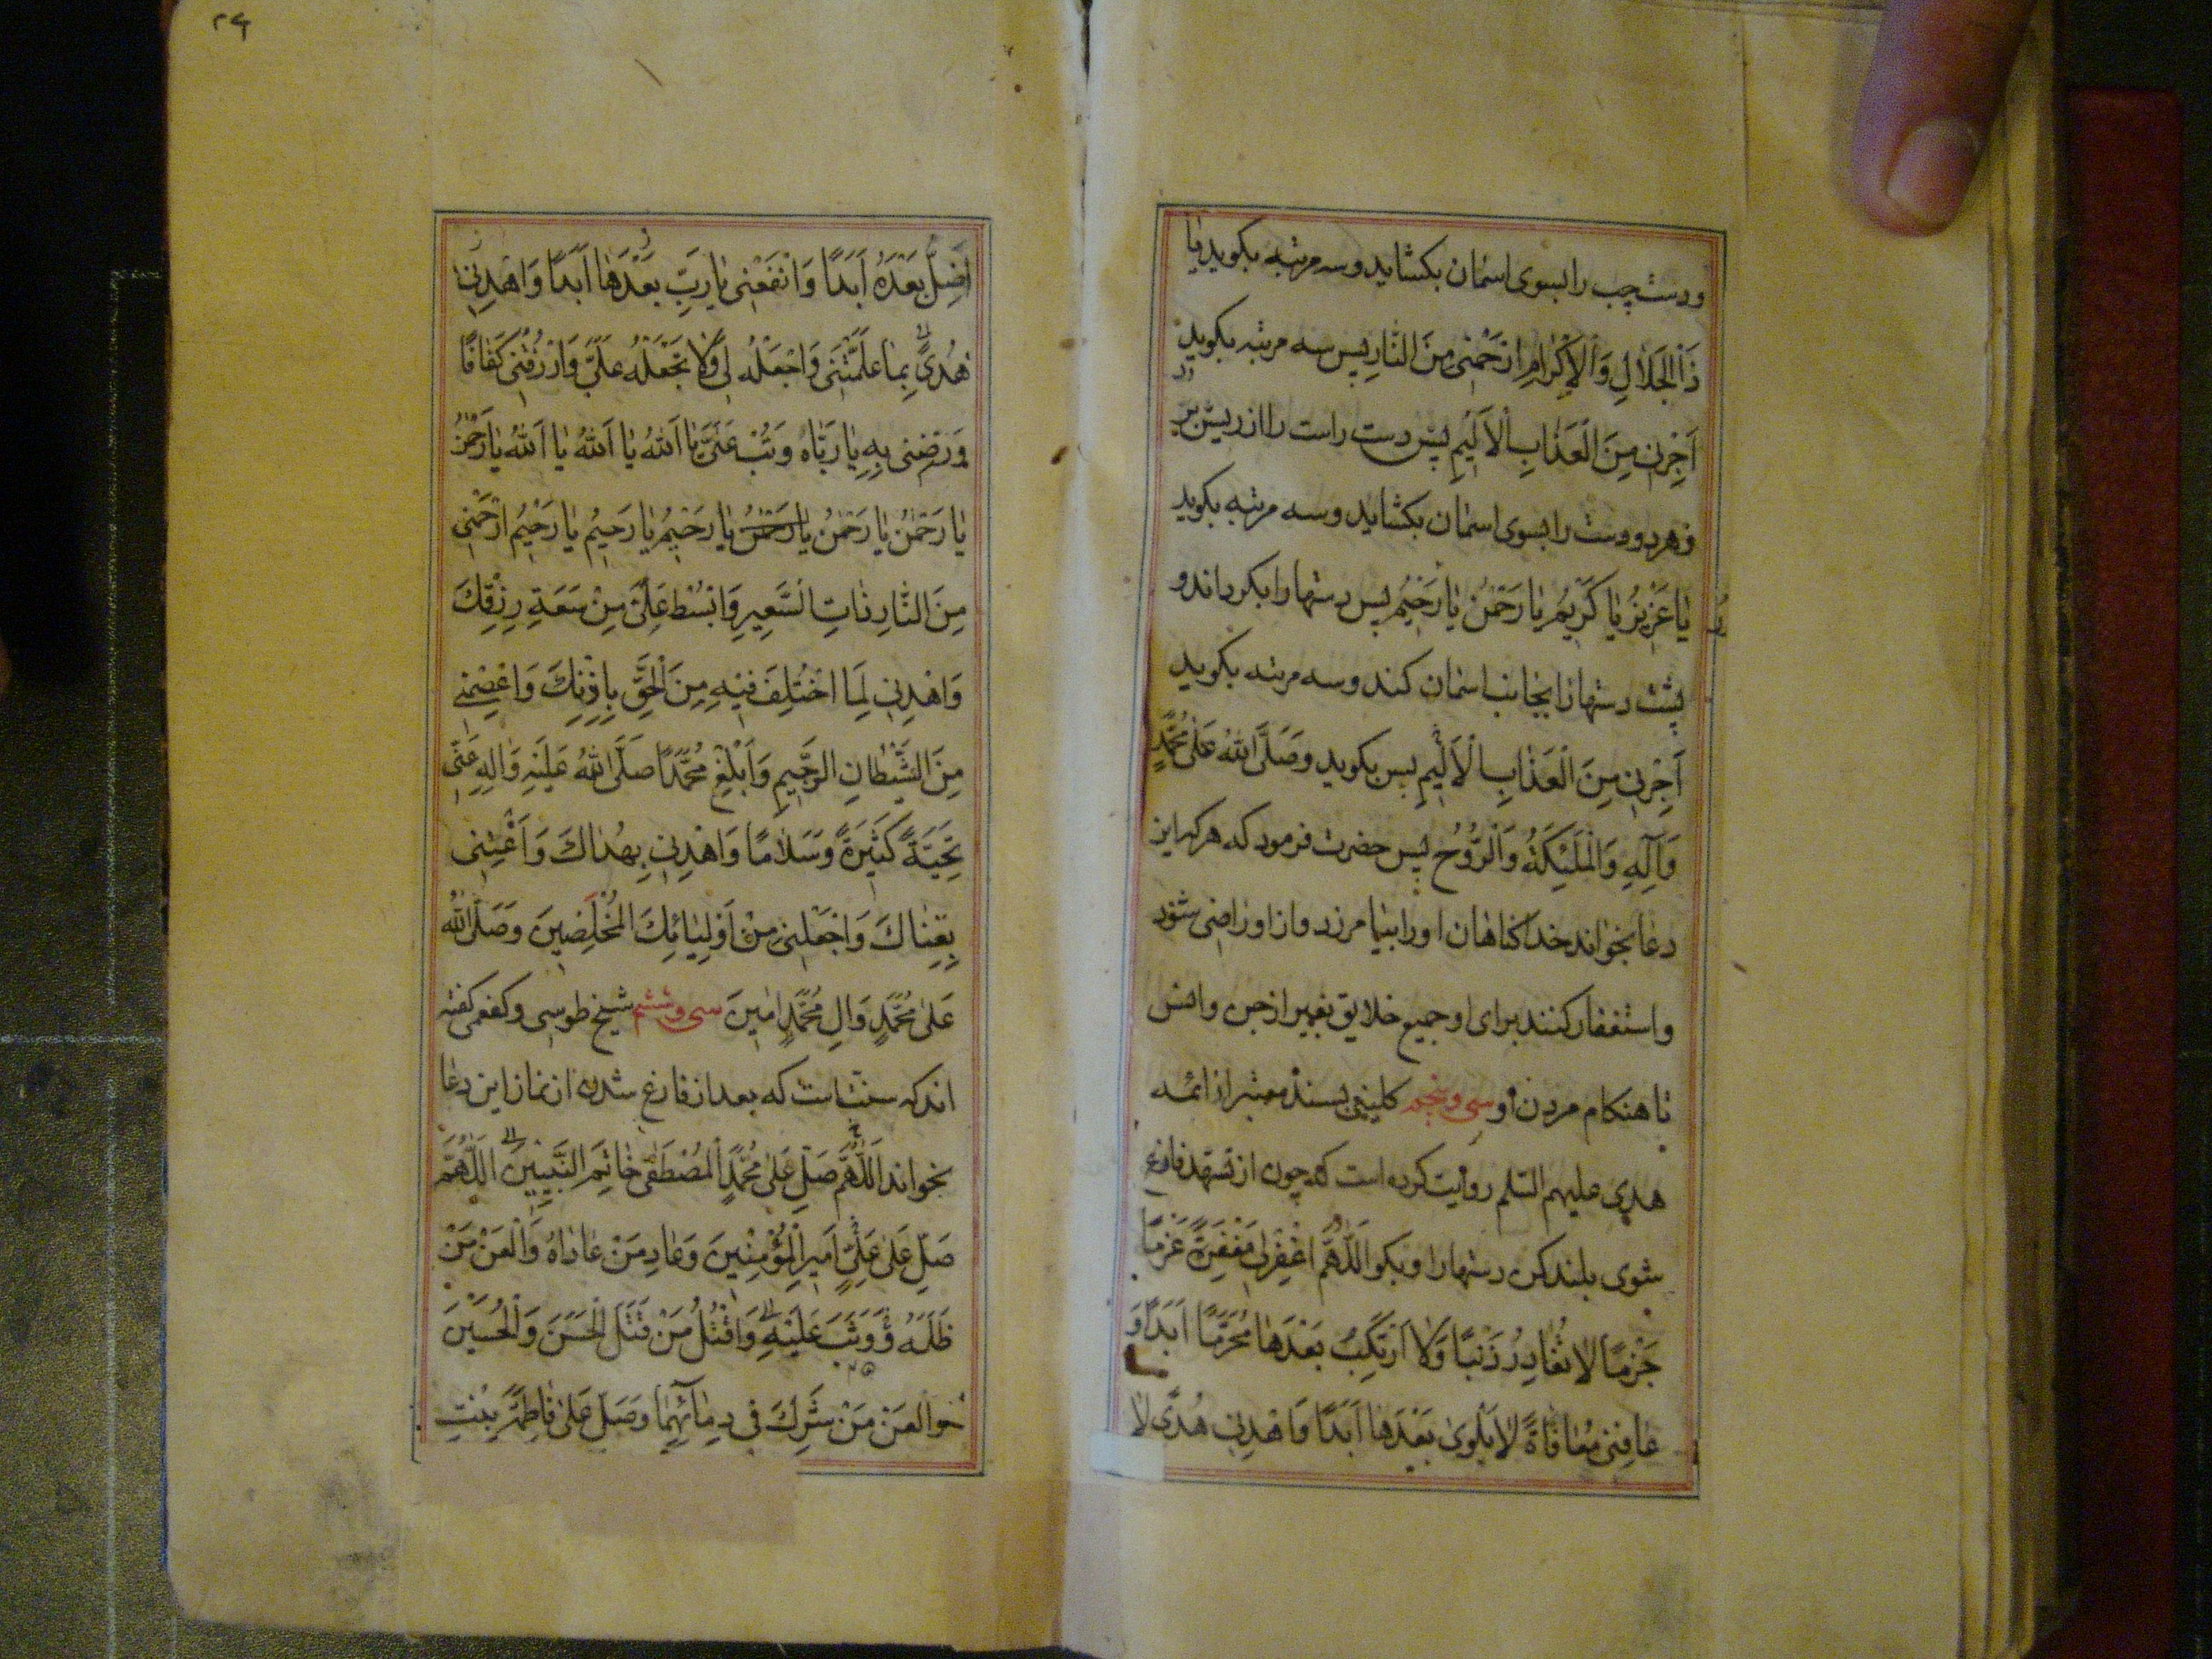 ودست چپ را بسوی اسمان بکشاید وسه مرتبه بکوید یا
ذَا الْجَلالِ وَالْاِكْرامِ ارْحَمْنی مِنَ النّارِ پس سه مرتبه بکوید
اَجِرْنی مِنَ الْعَذابِ الْاَلیمِ پس دست راست را از ریش بر
و هر دو دست را بسوی اسمان بکشاید وسه مرتبه بکوید
یا عَزیزُ یا كَریمُ یا رَحْمنُ یا رَحیمُ پس دستها را بکرداند و
پشت دستها را بجانب اسمان کند وسه مرتبه بکوید
اَجِرْنی مِنَ الْعَذابِ الْاَلیمِ پس بکوید وَصَلَّی اللهُ عَلی مُحَمَّدٍ
وَآلِهِ وَالْمَلئِكَةُ وَالرُّوحُ پس حضرت فرمود که هر که این
دعا بخواند خدا کناهان او را بیامرزد و از او راضی شود
و استغفار کنند برای او جمیع خلایق بغیر از جن و انس
تا هنکام مردن او سی و پنجم کلینی بسند معتبر از ائمه
هدی علیهم السّلم روایت کرده است که چون از تشهّد فارغ
شوی بلند کن دستها را و بکو اَللّهُمَّ اغْفِرْلی مَغْفِرَةً عَزْمًا
جَزْمًا لا تُغادِرُ ذَنْبًا وَلا اَرْتَكِبُ بَعْدَها مُحَرَّمًا اَبَدًا وَ
عافِنی مُعافاةً لا بَلْوی بَعْدَها اَبَدًا وَاهْدِنی هُدًی لا
۲۹
اَضِلُّ بَعْدَهُ اَبَدًا وَانْفَعْنی یا رَبِّ بَعْدَها اَبَدًا وَاهْدِنی
هُدًی بِما عَلَّمْتَنی وَاجْعَلْهُ لی وَلا تَجْعَلْهُ عَلَیَّ وَارْزُقْنی كَفافًا
وَرَضِّنی بِهِ یا رَبّاهُ وَتُبْ عَلَیَّ یا اَللهُ یا اَللهُ یا اَللهُ یا رَحْمنُ
یا رَحْمنُ یا رَحْمنُ یا رَحْمنُ یا رَحیمُ یا رَحیمُ یا رَحیمُ ارْحَمْنی
مِنَ النّارِ ذاتِ السَّعیرِ وَابْسُطْ عَلَیَّ مِنْ سَعَةِ رِزْقِكَ
وَاهْدِنی لِمَا اخْتُلِفَ فیهِ مِنَ الْحَقِّ بِاِذْنِكَ وَاعْصِمْنی
مِنَ الشَّیْطانِ الرَّجیمِ وَاَبْلِغْ مُحَمَّدًا صَلَّی اللهُ عَلَیْهِ وَالِهِ عَنّی
تَحِیَّةً كَثیرَةً وَسَلامًا وَاهْدِنی بِهُداكَ وَاَغْنِنی
بِغِناكَ وَاجْعَلْنی مِنْ اَوْلِیائِكَ الْمُخْلَصینَ وَصَلَّی اللهُ
عَلی مُحَمَّدٍ وَالِ مُحَمَّدٍ امینَ سی و ششم شیخ طوسی و کفعمی کفته
اند که سنت است که بعد از فارغ شدن از نماز این دعا
بخواند اَللّهُمَّ صَلِّ عَلی مُحَمَّدٍ الْمُصْطَفی خاتِمِ النَّبِیّینَ اَللّهُمَّ
صَلِّ عَلی عَلِیٍّ اَمیرِ الْمُؤْمِنینَ وَعادِ مَنْ عاداهُ وَالْعَنْ مَنْ
ظَلَمَهُ وَوَثَبَ عَلَیْهِ وَاقْتُلْ مَنْ قَتَلَ الْحَسَنَ وَالْحُسَیْنَ
والعَنْ مَنْ شَرِكَ فی دِمائِهِما وَصَلِّ عَلی فاطِمَةَ بِنْتِ